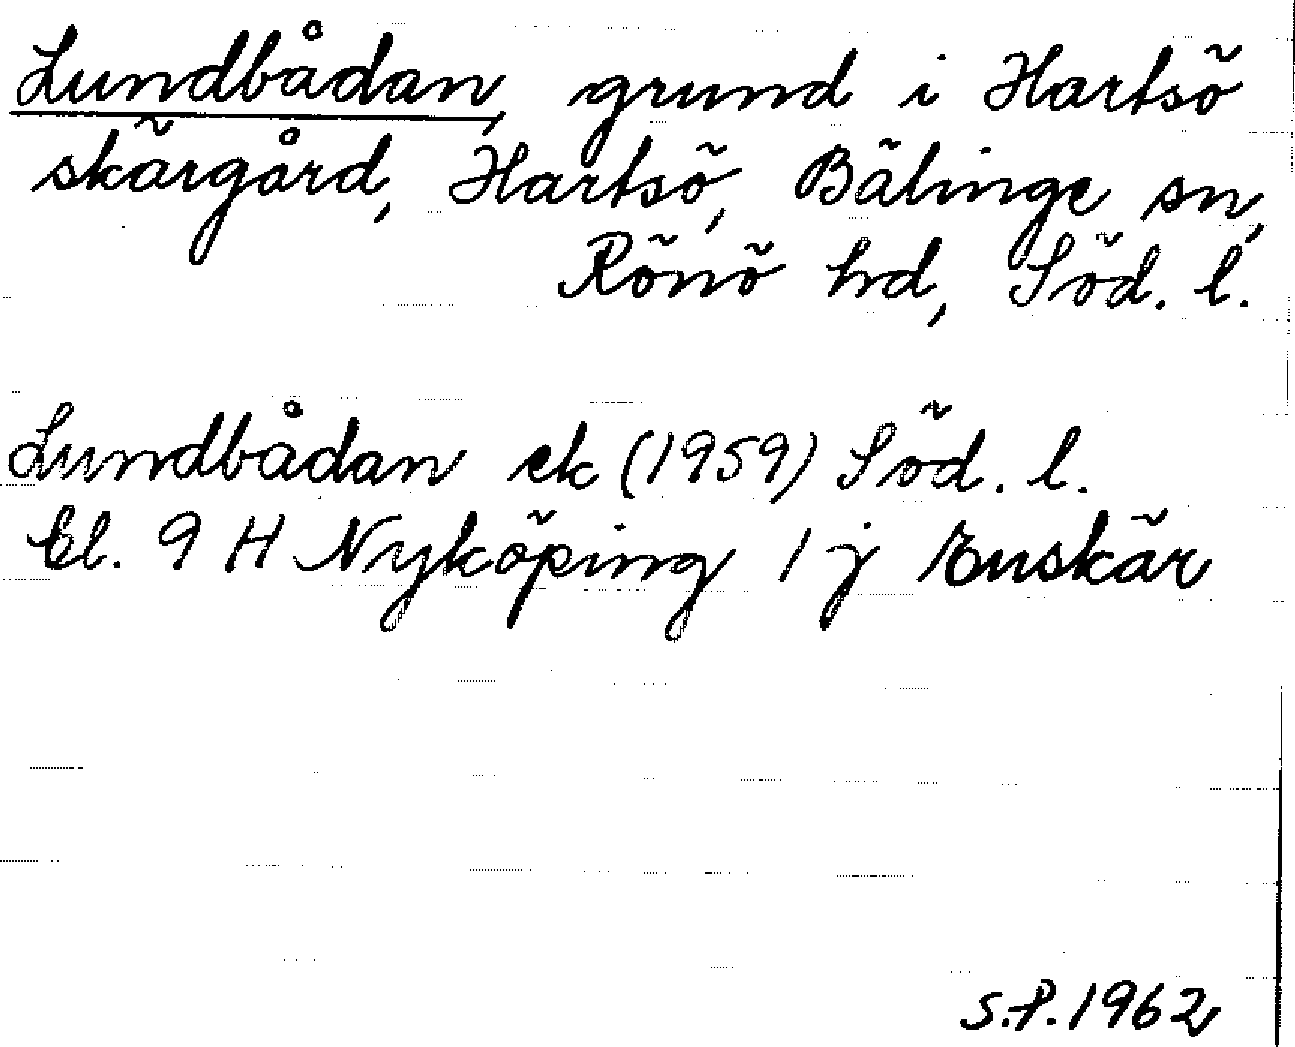 Lundbådan, grund i Hartsö
skärgård, Hartsö, Bälinge sn,
Rönö hd, Söd. l.
Lundbådan ek (1959) Söd. l.
Bl. 9 H Nyköping 1 j Enskär
S.P. 1962